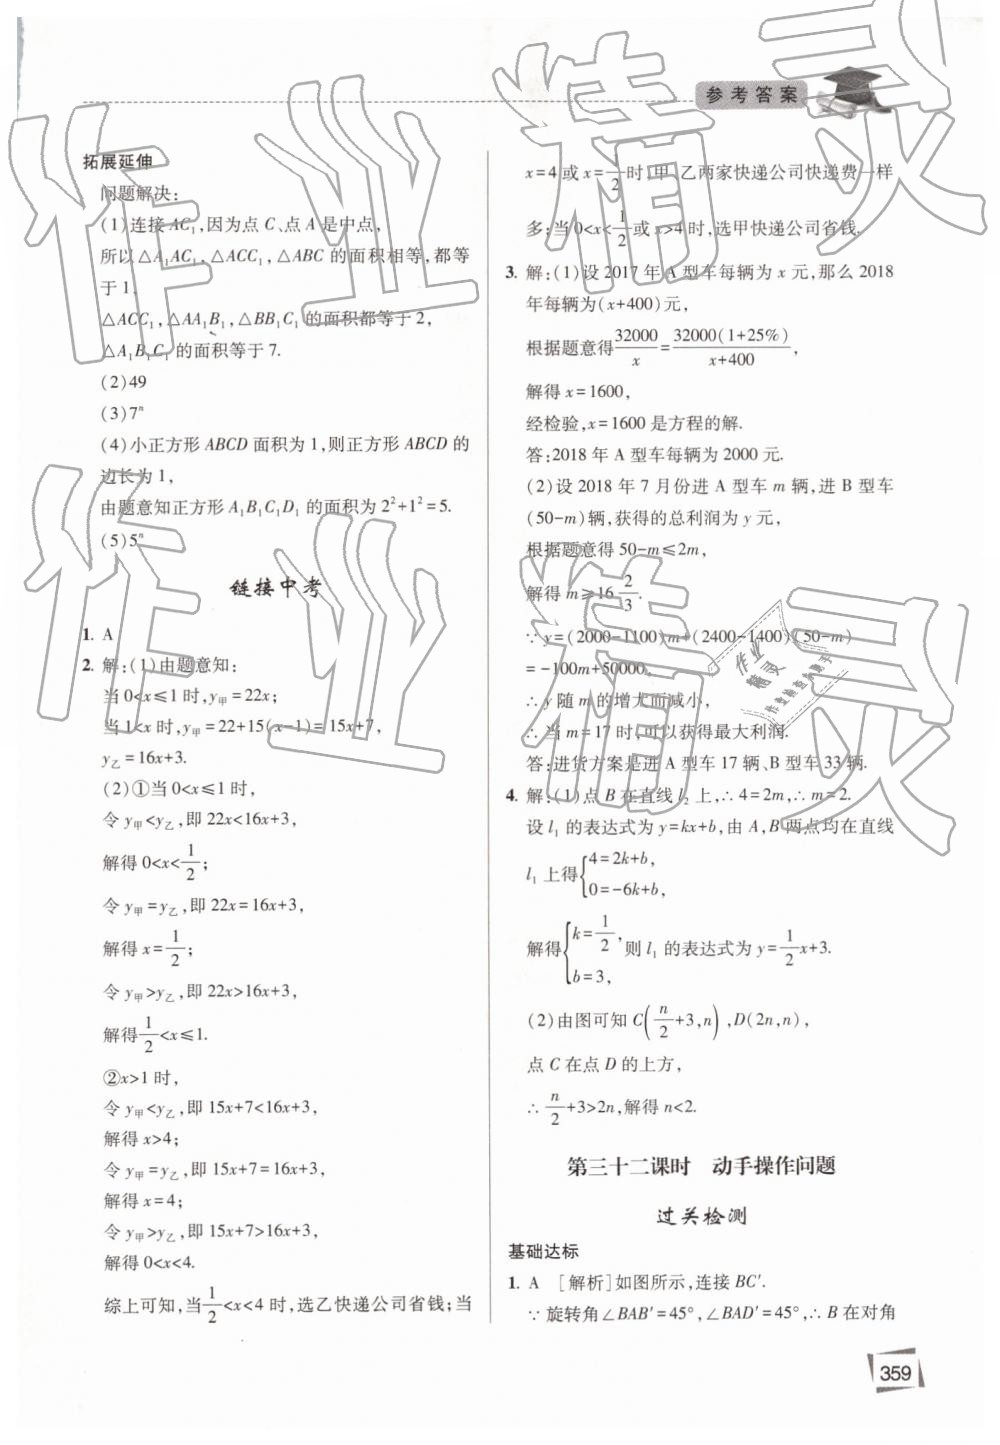 参考答案
拓展延伸
问题解决:
(1)连接 AC₁,因为点 C、点 A 是中点,
所以△A₁AC₁,△ACC₁,△ABC 的面积相等,都等
于 1,
△ACC₁,△AA₁B₁,△BB₁C₁ 的面积都等于 2,
△A₁B₁C₁ 的面积等于 7.
(2)49
(3)7ⁿ
(4)小正方形 ABCD 面积为 1,则正方形 ABCD 的
边长为 1,
由题意知正方形 A₁B₁C₁D₁ 的面积为 2²+1²=5.
(5)5ⁿ
链接中考
1. A
2. 解:(1)由题意知:
当 0<x≤1 时,y甲=22x;
当 1<x 时,y甲=22+15(x-1)=15x+7,
y乙=16x+3.
(2)①当 0<x≤1 时,
令 y甲<y乙,即 22x<16x+3,
解得 0<x<1/2;
令 y甲=y乙,即 22x=16x+3,
解得 x=1/2;
令 y甲>y乙,即 22x>16x+3,
解得1/2<x≤1.
②x>1 时,
令 y甲<y乙,即 15x+7<16x+3,
解得 x>4;
令 y甲=y乙,即 15x+7=16x+3,
解得 x=4;
令 y甲>y乙,即 15x+7>16x+3,
解得 0<x<4.
综上可知,当1/2<x<4 时,选乙快递公司省钱;当
x=4 或 x=1/2时,甲、乙两家快递公司快递费一样
多;当 0<x<1/2或 x>4 时,选甲快递公司省钱.
3. 解:(1)设 2017 年 A 型车每辆为 x 元,那么 2018
年每辆为(x+400)元,
根据题意得32000/x=32000(1+25%)/(x+400),
解得 x=1600,
经检验,x=1600 是方程的解.
答:2018 年 A 型车每辆为 2000 元.
(2)设 2018 年 7 月份进 A 型车 m 辆,进 B 型车
(50-m)辆,获得的总利润为 y 元,
根据题意得 50-m≤2m,
解得 m≥16 2/3.
∵y=(2000-1100)m+(2400-1400)(50-m)
=-100m+50000,
∴y 随 m 的增大而减小,
∴当 m=17 时,可以获得最大利润.
答:进货方案是进 A 型车 17 辆、B 型车 33 辆.
4. 解:(1)点 B 在直线 l₂ 上,∴4=2m,∴m=2.
设 l₁ 的表达式为 y=kx+b,由 A,B 两点均在直线
l₁ 上得{4=2k+b,
0=-6k+b,
解得{k=1/2, b=3, 则 l₁ 的表达式为 y=1/2x+3.
(2)由图可知 C(n/2+3,n),D(2n,n),
点 C 在点 D 的上方,
∴n/2+3>2n,解得 n<2.
第三十二课时 动手操作问题
过关检测
基础达标
1. A [解析]如图所示,连接 BC′.
∵旋转角∠BAB′=45°,∠BAD′=45°,∴B 在对角
359
作业精灵
作业精灵
作业
精灵